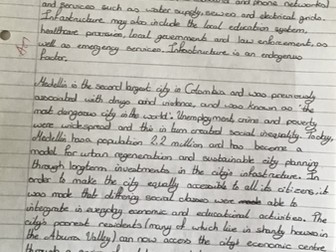 and phone networks
and services such as water supply, sewers and electrical grids.
Infrastructure may also include the local education system,
healthcare provision, local government and law enforcement, as
well as emergency services. Infrastructure is an endogenous
factor.
Medellin is the second largest city in Colombia and was previously
associated with drugs and violence, and was known as 'the
most dangerous city in the world'. Unemployment, crime and poverty
were widespread and this in turn created social inequality. Today,
Medellin has a population 2.2 million and has become a
model for urban regeneration and sustainable city planning
through longterm investments in the city's infrastructure. In
order to make the city equally accessible to all its citizens, it
was made that differing social classes were able to
integrate in everyday economic and educational activities. The
city's poorest residents (many of which live in shanty houses in
the Aburra Valley) can now access the city's economic centre
through